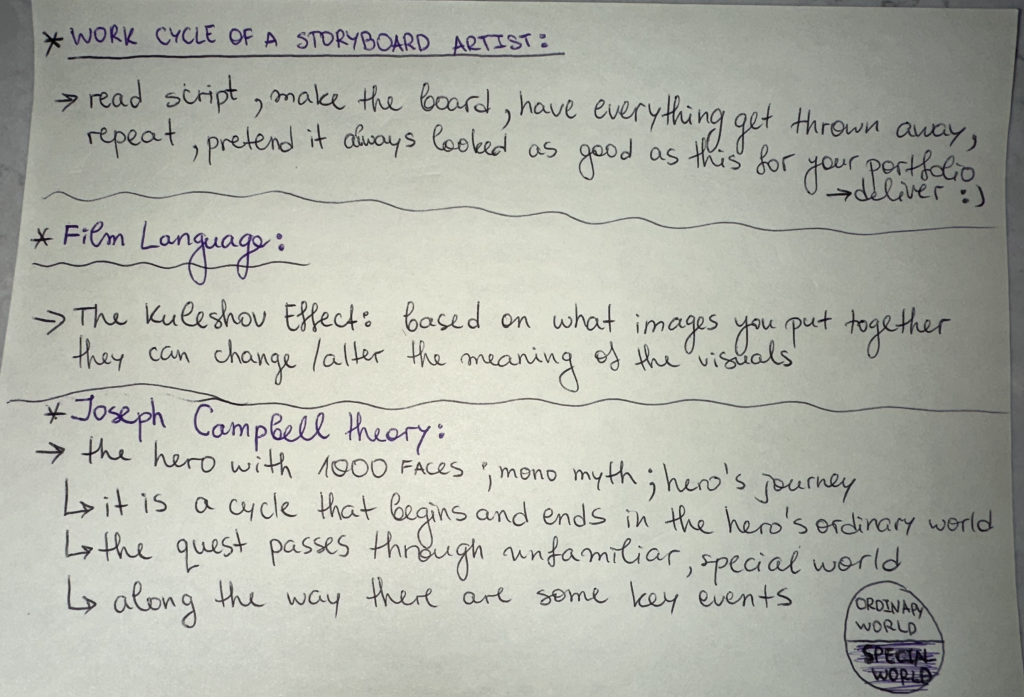 * WORK CYCLE OF A STORYBOARD ARTIST:
→ read script, make the board, have everything get thrown away,
repeat, pretend it always looked as good as this for your portfolio
→ deliver :)
* Film Language:
→ The Kuleshov Effect: based on what images you put together
they can change/alter the meaning of the visuals
* Joseph Campbell theory:
→ the hero with 1000 FACES ; mono myth ; hero's journey
↳ it is a cycle that begins and ends in the hero's ordinary world
↳ the quest passes through unfamiliar, special world
↳ along the way there are some key events
ORDINARY
WORLD
SPECIAL
WORLD